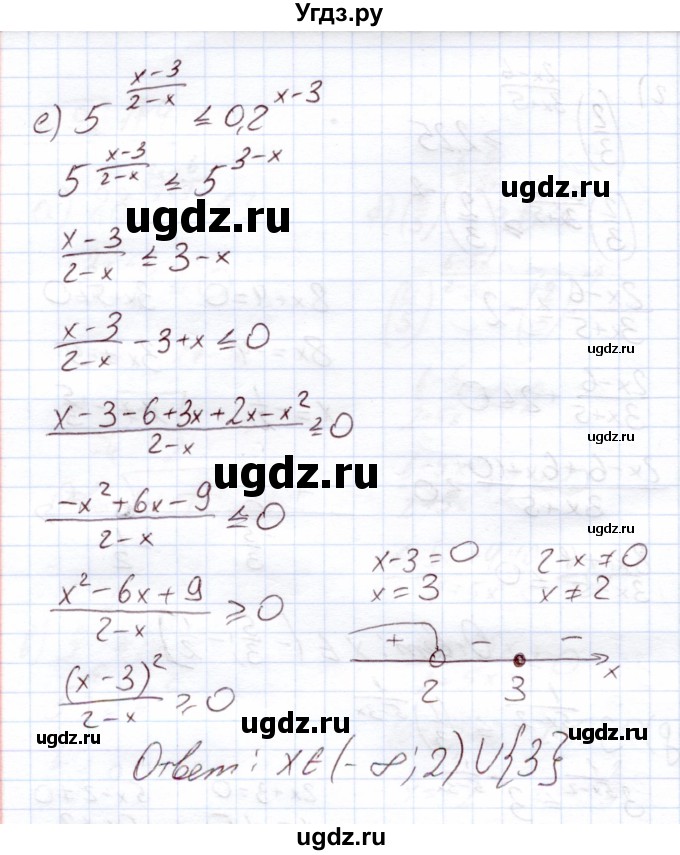 Угдз.ру
е) 5^((x-3)/(2-x)) ≤ 0,2^(x-3)
5^((x-3)/(2-x)) ≤ 5^(3-x)
ugdz.ru
ugdz.ru
(x-3)/(2-x) ≤ 3-x
(x-3)/(2-x) - 3+x ≤ 0
ugdz.ru
(x-3-6+3x+2x-x²)/(2-x) ≥ 0
ugdz.ru
ugdz.ru
(-x²+6x-9)/(2-x) ≤ 0
ugdz.ru
x-3=0 2-x≠0
x=3 x≠2
(x²-6x+9)/(2-x) ≥ 0
+ - -
2 3 x
(x-3)²/(2-x) ≥ 0
ugdz.ru
ugdz.ru
ugdz.ru
Ответ: x∈(-∞;2)∪{3}
ugdz.ru